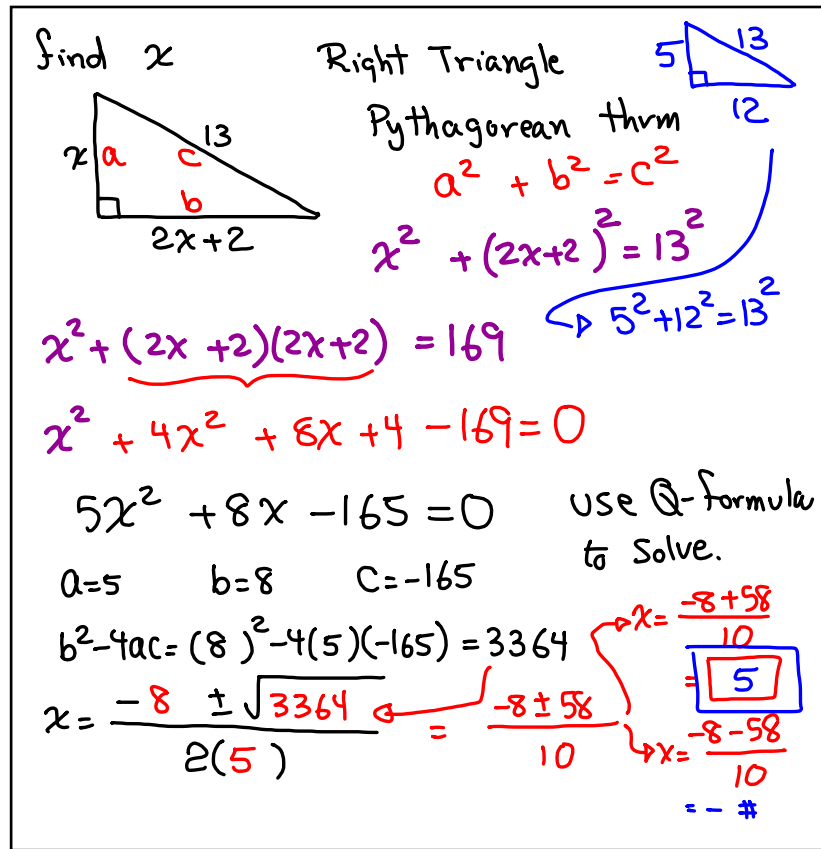 find x
Right Triangle
5 13
12
x a c 13
b
2x+2
Pythagorean thrm
a² + b² = c²
x² + (2x+2)² = 13²
5²+12²=13²
x² + (2x +2)(2x+2) = 169
x² + 4x² + 8x +4 -169=0
5x² +8x -165 =0
use Q-formula
to solve.
a=5 b=8 c=-165
b²-4ac= (8 )² -4(5)(-165) = 3364
x = (-8 ± √3364) / 2(5 ) = (-8 ± 58) / 10
x= (-8+58) / 10
= 5
x= (-8-58) / 10
= - #